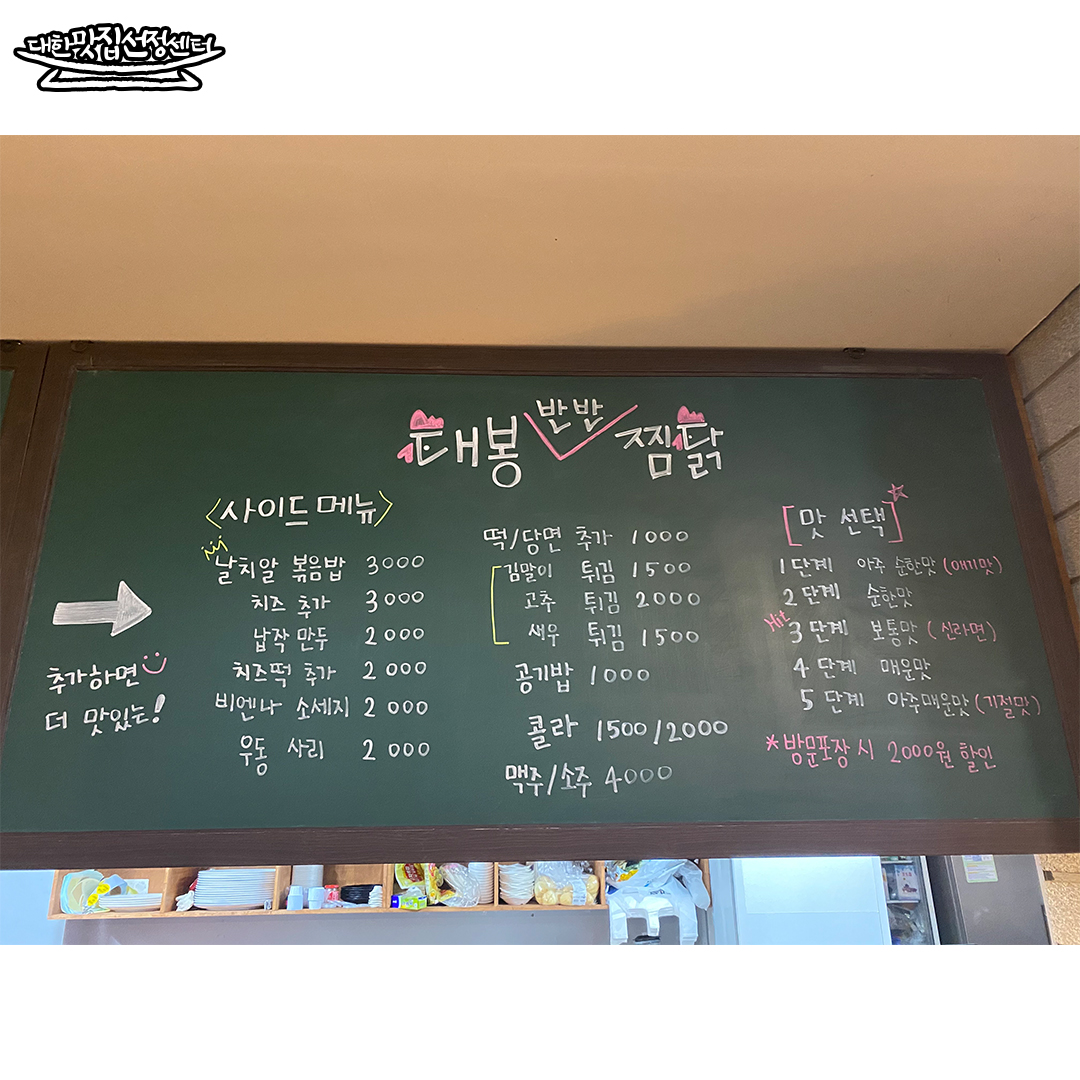 대한맛집선정센터
태봉 반반 찜닭
<사이드 메뉴>
날치알 볶음밥 3000
치즈 추가 3000
납작 만두 2000
치즈떡 추가 2000
비엔나 소세지 2000
우동 사리 2000
추가하면
더 맛있는!
떡/당면 추가 1000
김말이 튀김 1500
고추 튀김 2000
새우 튀김 1500
공기밥 1000
콜라 1500/2000
맥주/소주 4000
[맛 선택]
1단계 아주 순한맛 (애기맛)
2단계 순한맛
Hit 3단계 보통맛 (신라면)
4단계 매운맛
5단계 아주매운맛 (기절맛)
*방문포장 시 2000원 할인